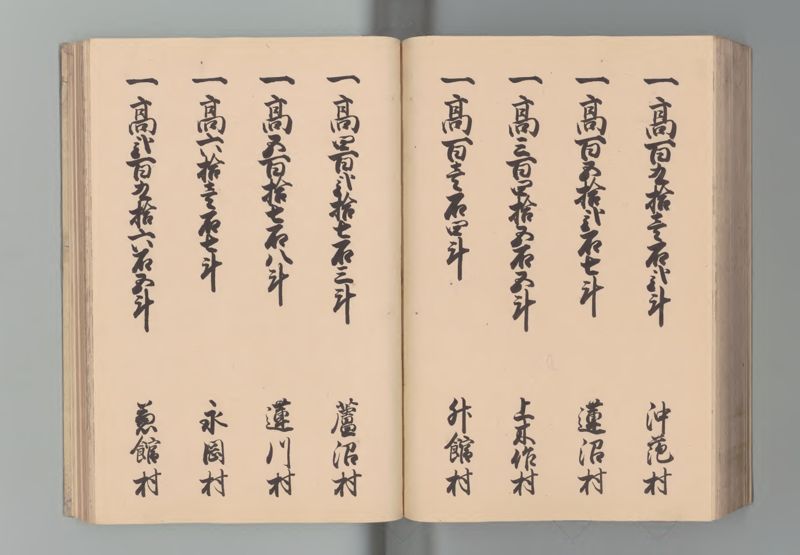 一高百九拾壱石弐斗 沖范村
一高百五拾弐石七斗 蓮沼村
一高三百四拾五石五斗 上木作村
一高百壱石四斗 外館村
一高四百弐拾七石三斗 蘆沼村
一高五百拾七石八斗 蓮川村
一高六拾壱石七斗 永岡村
一高弐百九拾六石五斗 館村